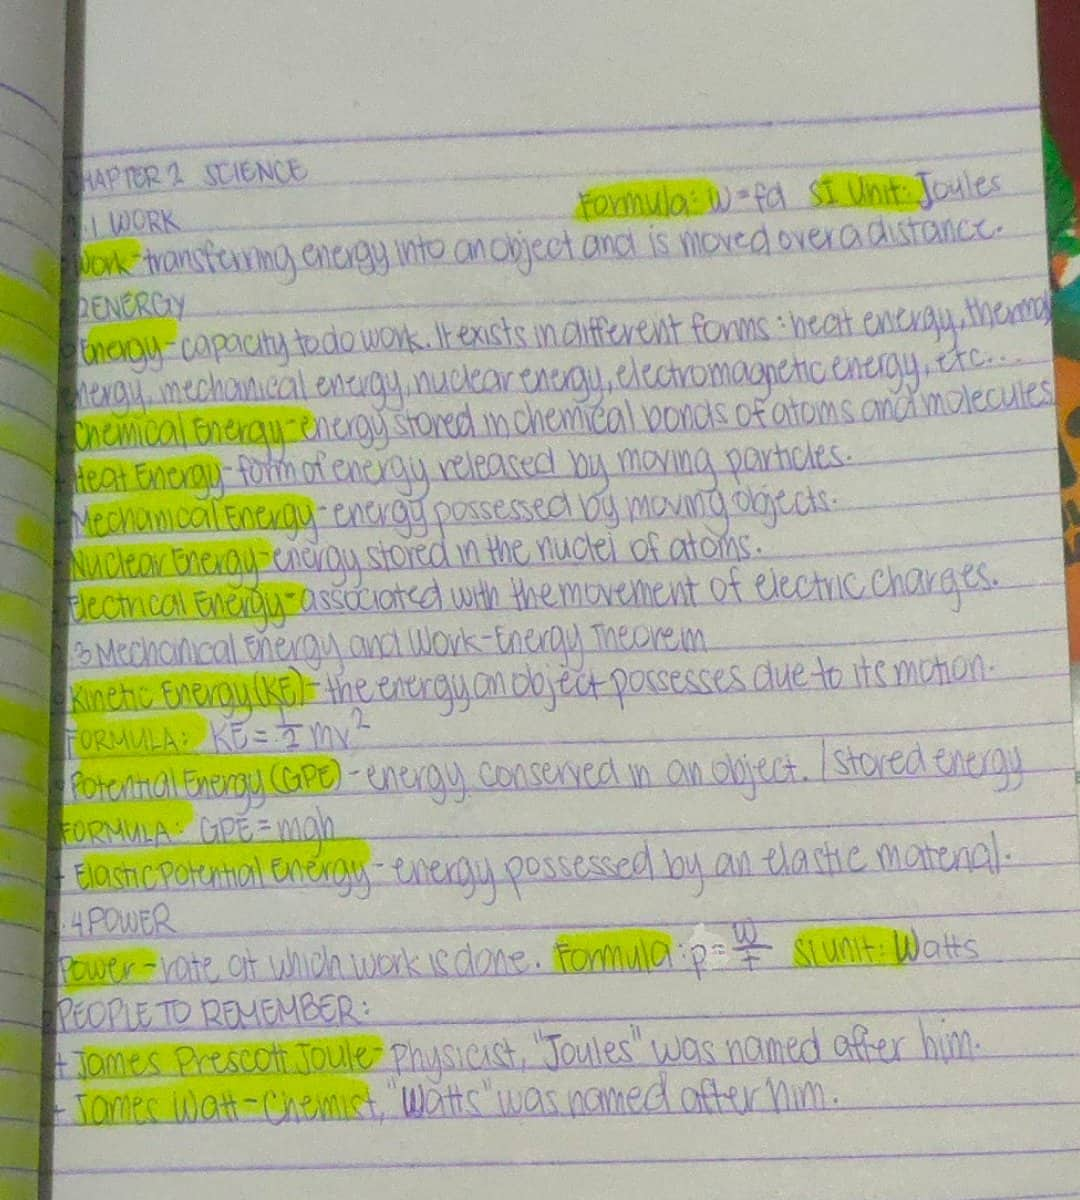 CHAPTER 2 SCIENCE
Formula: W=fd SI Unit: Joules
.1 WORK
Work-transferring energy into an object and is moved over a distance.
2 ENERGY
Energy-capacity to do work. It exists in different forms: heat energy, thermal
energy, mechanical energy, nuclear energy, electromagnetic energy, etc...
Chemical Energy-energy stored in chemical bonds of atoms and molecules
Heat Energy-form of energy released by moving particles.
Mechanical Energy-energy possessed by moving objects.
Nuclear Energy-energy stored in the nuclei of atoms.
Electrical Energy-associated with the movement of electric charges.
.3 Mechanical Energy and Work-Energy Theorem
Kinetic Energy (KE)-the energy an object possesses due to its motion.
FORMULA: KE = 1/2 mv²
Potential Energy (GPE)-energy conserved in an object. / stored energy
FORMULA: GPE = mgh
- Elastic Potential Energy-energy possessed by an elastic material.
.4 POWER
Power-rate at which work is done. Formula: p= w/t SI unit: Watts
PEOPLE TO REMEMBER:
+ James Prescott Joule- Physicist, "Joules" was named after him.
+ James Watt-Chemist, "Watts" was named after him.